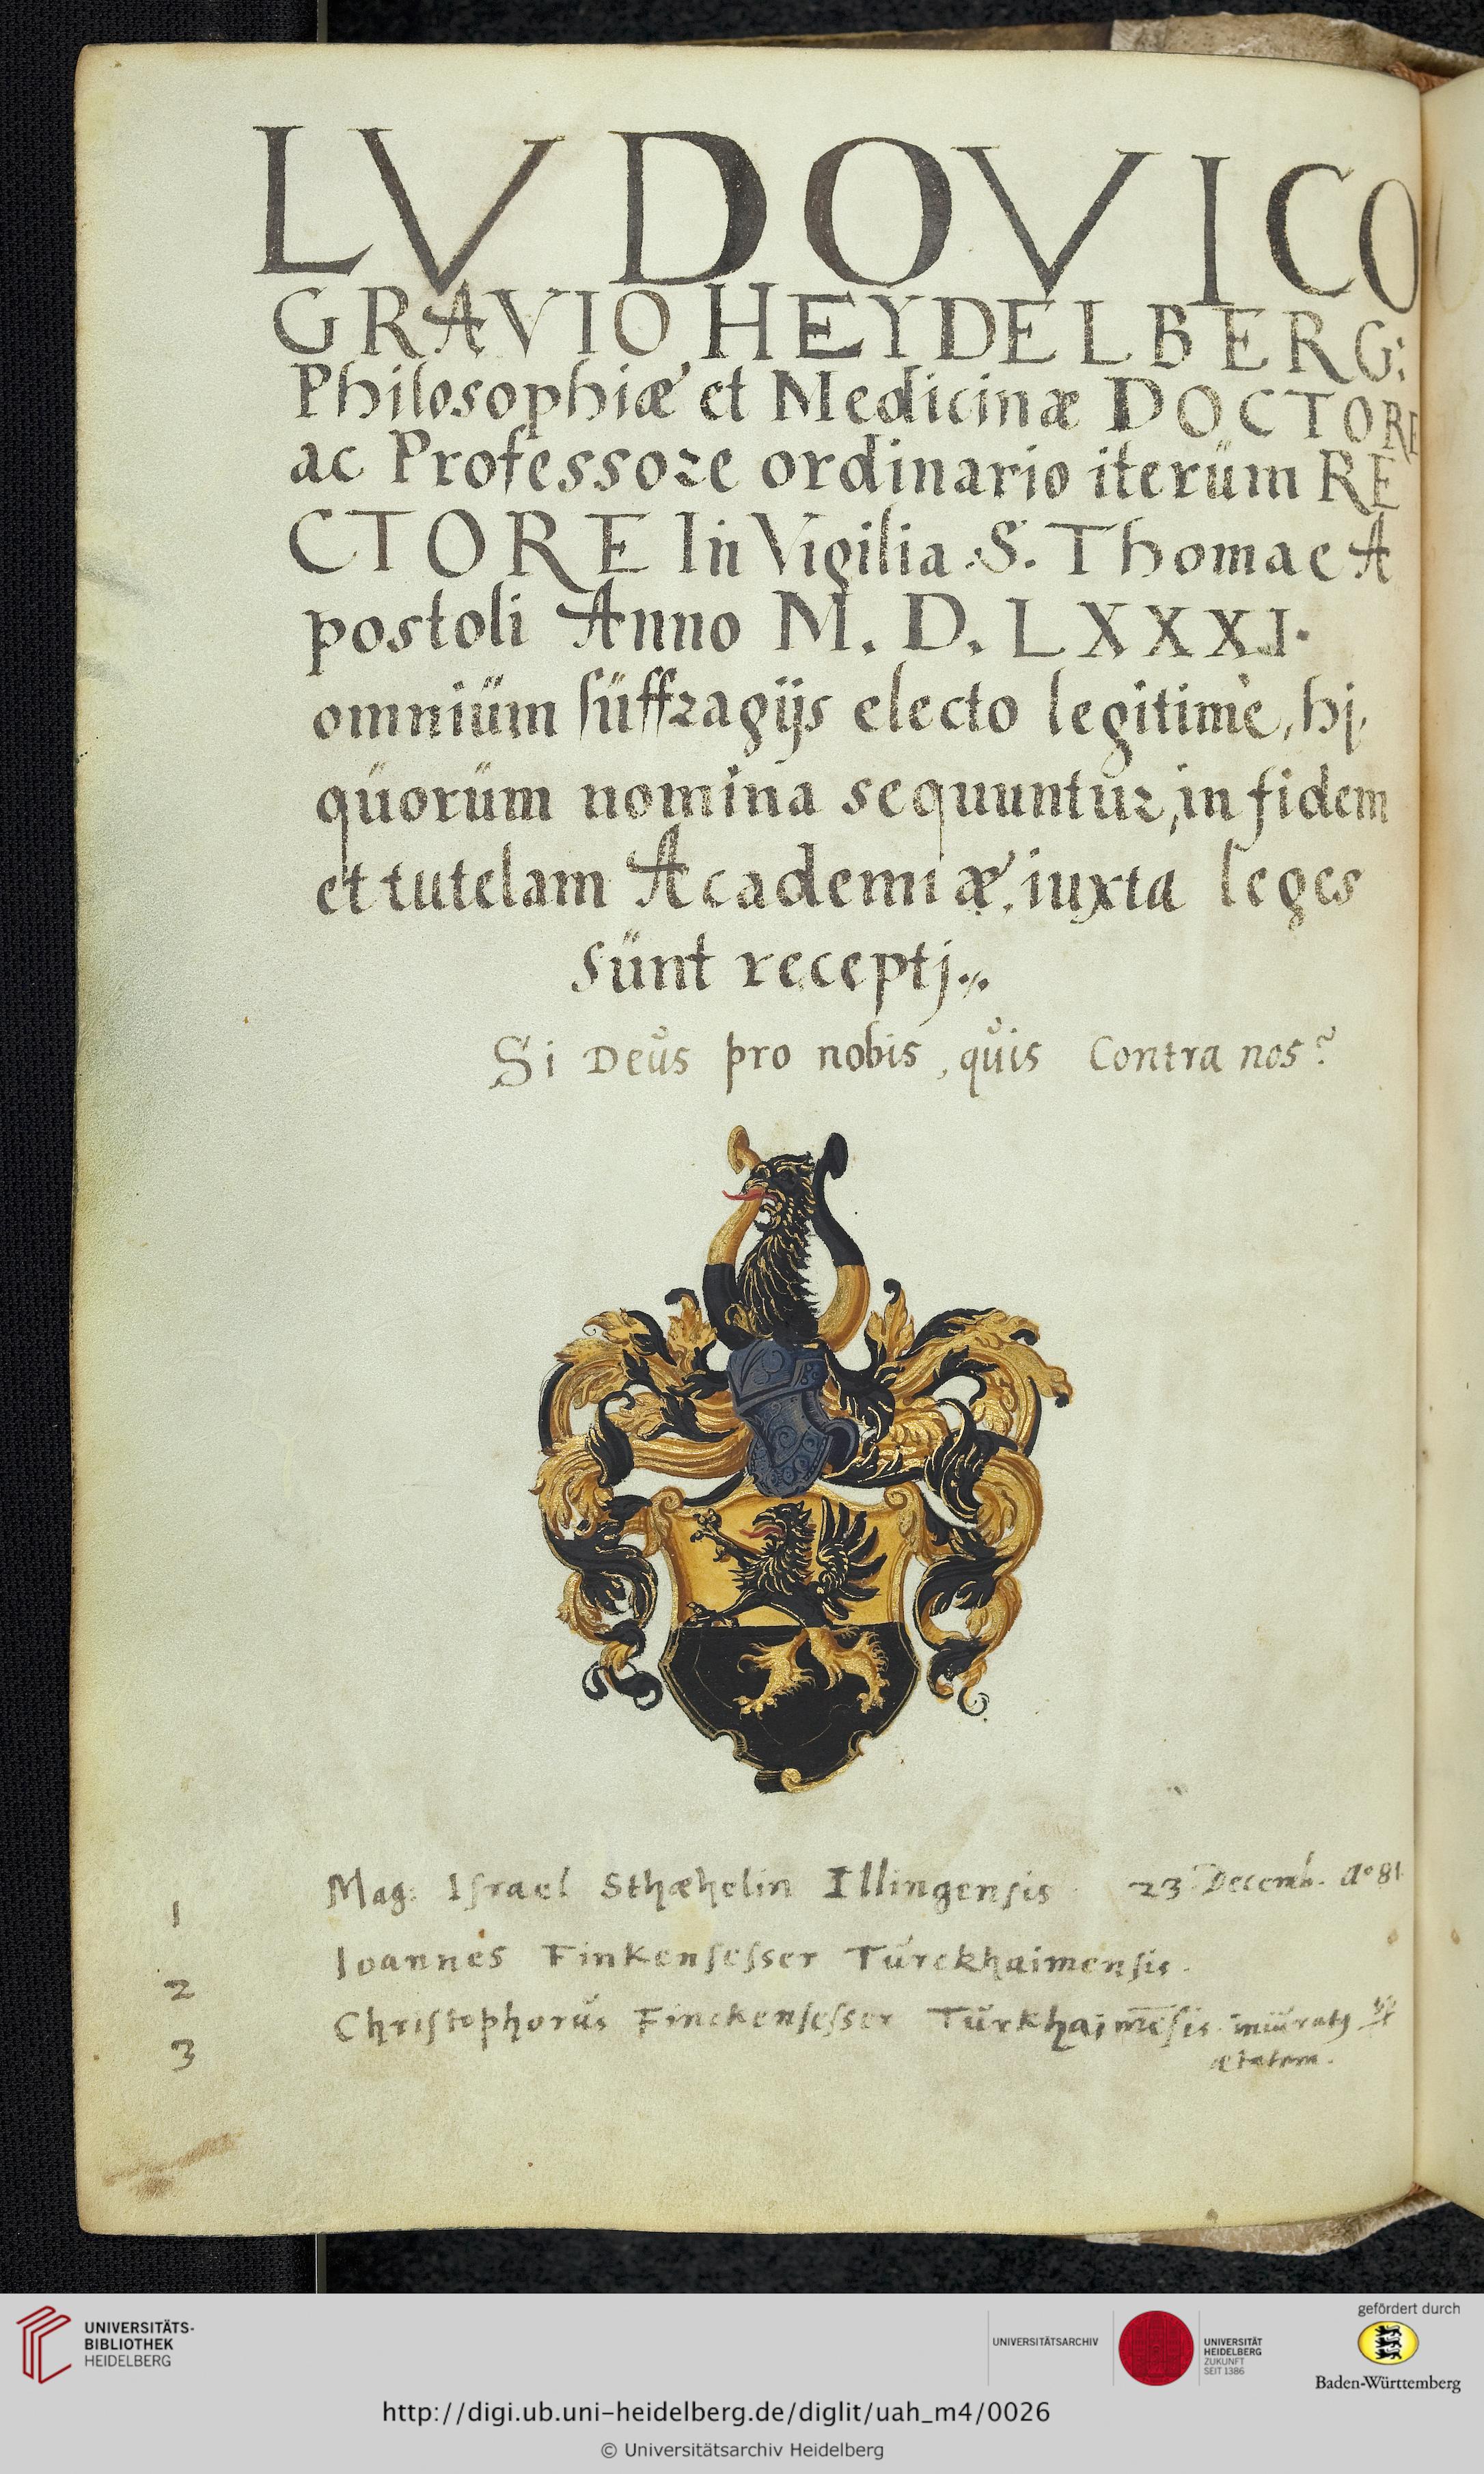 LVDOVICO
GRAVIO HEYDELBERG:
Philosophiæ et Medicinæ DOCTORE
ac Professore ordinario iterum RE
CTORE In Vigilia .S. Thomae A
postoli Anno M. D. LXXXI.
omnium suffragijs electo legitimè, hj,
quorum nomina sequuntur, in fidem
et tutelam Academiæ, iuxta leges
sunt receptj.
Si Deus pro nobis, quis Contra nos?
1 Mag: Israel Sthæhelin Illingensis 23 Decemb. Aº 81
2 Ioannes Finkensesser Turckhaimensis.
3 Christophorus Finckensesser Turkhaimēsis. iniuratq
ætatem.
UNIVERSITÄTS-
BIBLIOTHEK
HEIDELBERG
UNIVERSITÄTSARCHIV
UNIVERSITÄT
HEIDELBERG
ZUKUNFT
SEIT 1386
gefördert durch
Baden-Württemberg
http://digi.ub.uni-heidelberg.de/diglit/uah_m4/0026
© Universitätsarchiv Heidelberg